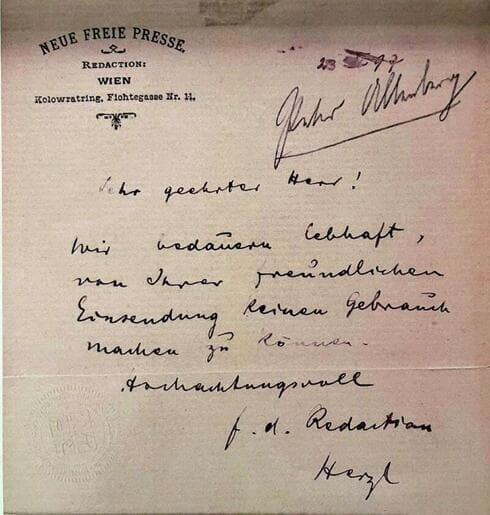 NEUE FREIE PRESSE.
REDACTION:
WIEN
Kolowratring, Fichtegasse Nr. 11.
Peter Altenberg
Sehr geehrter Herr!
Wir bedauern lebhaft,
von Ihrer freundlichen
Einsendung keinen Gebrauch
machen zu können.
Hochachtungsvoll
f. d. Redaction
Herzl